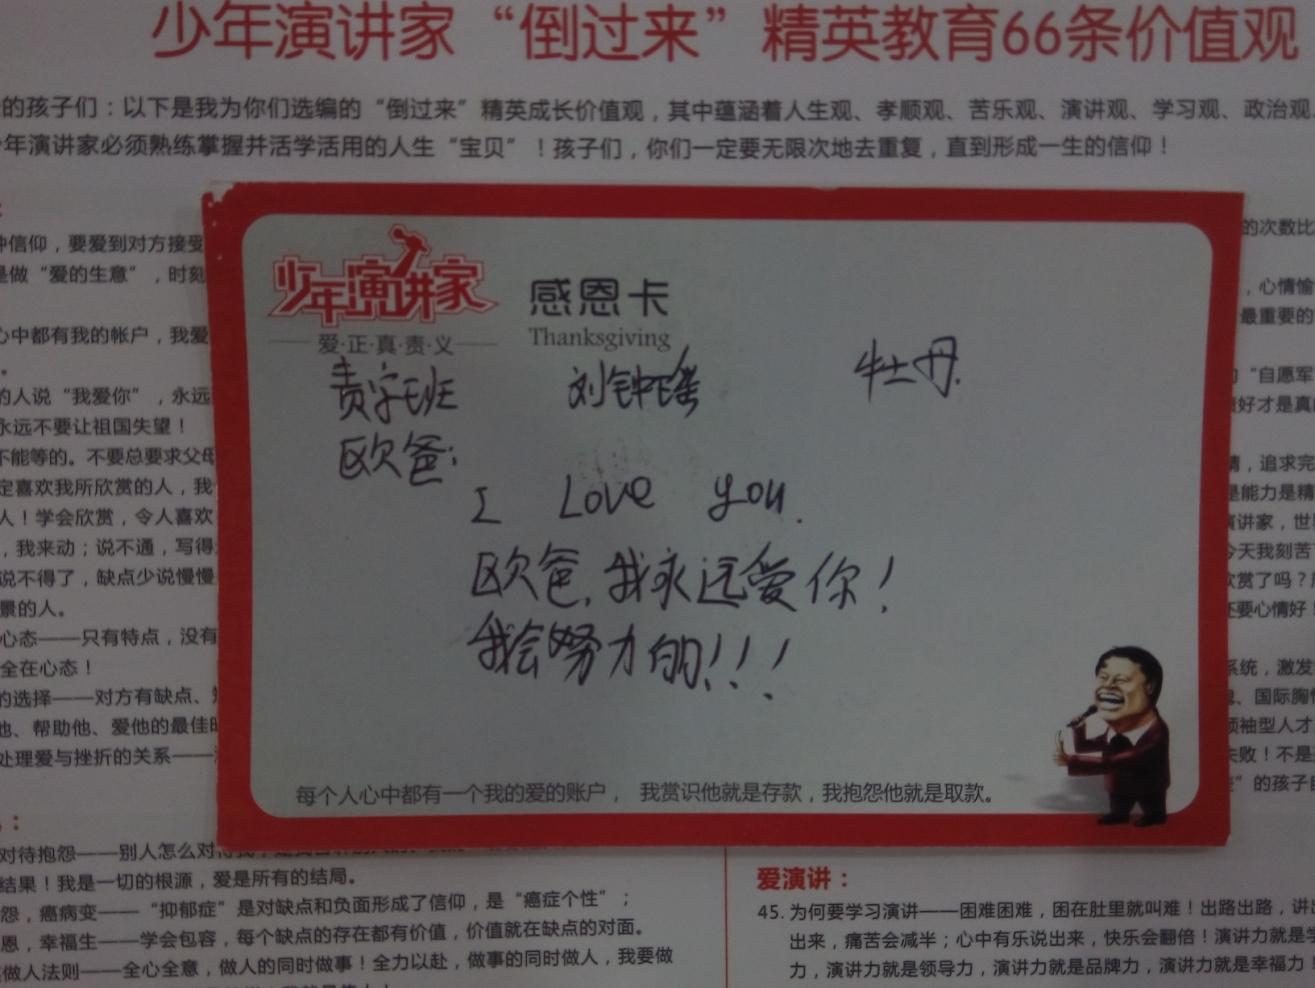 少年演讲家“倒过来”精英教育66条价值观
的孩子们：以下是我为你们选编的“倒过来”精英成长价值观，其中蕴涵着人生观、孝顺观、苦乐观、演讲观、学习观、政治观
年演讲家必须熟练掌握并活学活用的人生“宝贝”！孩子们，你们一定要无限次地去重复，直到形成一生的信仰！
信仰，要爱到对方接受
是做“爱的生意”，时刻
心中都有我的帐户，我爱
的人说“我爱你”，永远
永远不要让祖国失望！
不能等的。不要总要求父母
定喜欢我所欣赏的人，我
人！学会欣赏，令人喜欢
，我来动；说不通，写得
说不得了，缺点少说慢慢
景的人。
心态——只有特点，没有
全在心态！
的选择——对方有缺点、
他、帮助他、爱他的最佳
处理爱与挫折的关系——
少年演讲家
爱·正·真·责·义
感恩卡
Thanksgiving
责字班 刘钟瑶 牡丹.
欧爸:
I Love you.
欧爸,我永远爱你!
我会努力的!!!
每个人心中都有一个我的爱的账户，我赏识他就是存款，我抱怨他就是取款。
的次数比
，心情愉
最重要的
“自愿军
好才是真
，追求完
是能力是精
演讲家，世
今天我刻苦
欣赏了吗？
还要心情好！
系统，激发
、国际胸
领袖型人才
失败！不是
”的孩子
对待抱怨——别人怎么对
结果！我是一切的根源，爱是所有的结局。
怨，癌病变——“抑郁症”是对缺点和负面形成了信仰，是“癌症个性”；
恩，幸福生——学会包容，每个缺点的存在都有价值，价值就在缺点的对面。
做人法则——全心全意，做人的同时做事！全力以赴，做事的同时做人，我要做
爱演讲：
45. 为何要学习演讲——困难困难，困在肚里就叫难！出路出路，讲
出来，痛苦会减半；心中有乐说出来，快乐会翻倍！演讲力就是
力，演讲力就是领导力，演讲力就是品牌力，演讲力就是幸福力！